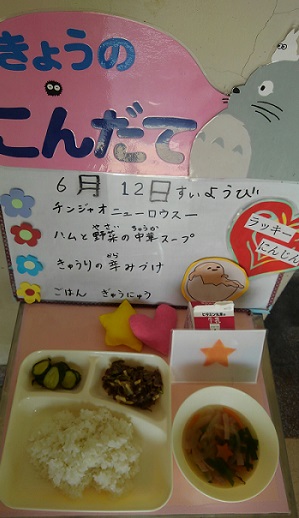 きょうの
こんだて
6月 12日 すいようび
チンジャオニューロウスー
ハムと野菜の中華スープ
やさい ちゅうか
きゅうりの辛みづけ
から
ごはん ぎゅうにゅう
ラッキー
にんじん